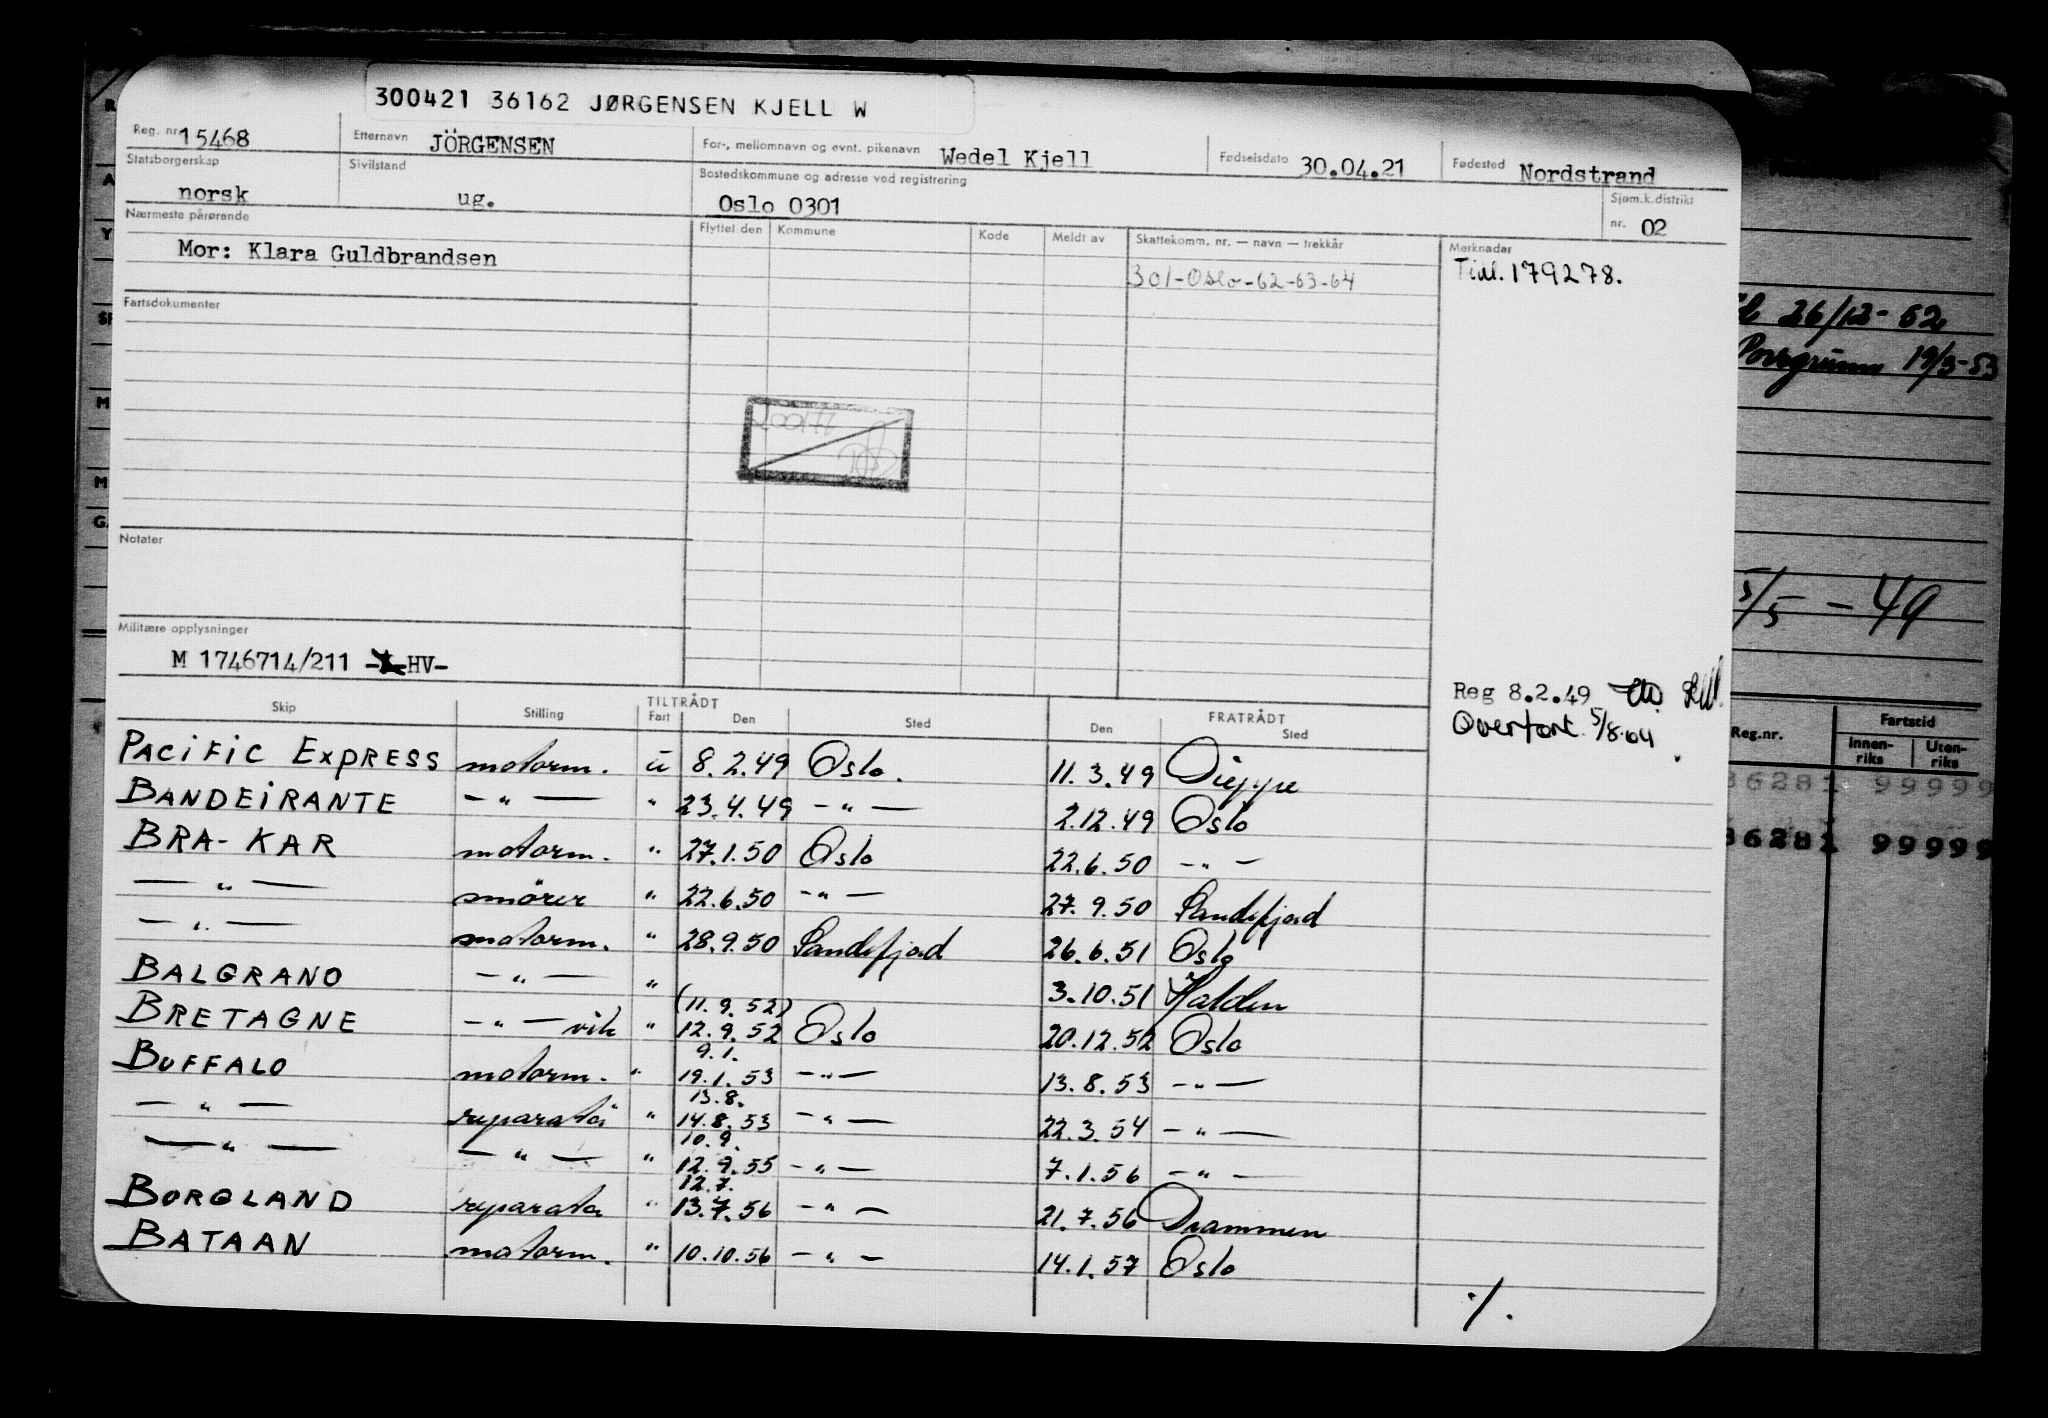 300421 36162 JØRGENSEN KJELL W
Reg. nr. 15468 Etternavn JÖRGENSEN For-, mellomnavn og evnt. pikenavn Wedel Kjell Fødselsdato 30.04.21 Fødested Nordstrand
Statsborgerskap norsk Sivilstand ug. Bostedskommune og adresse ved registrering Oslo 0301 Sjøm.k.distrikt nr. 02
Nærmeste pårørende Flyttet den Kommune Kode Meldt av Skattekomm. nr. — navn — trekkår Merknader
Mor: Klara Guldbrandsen 301-Oslo-62-63-64 Tidl. 179278.
Fartsdokumenter
Notater
Militære opplysninger
M 1746714/211 HV-
Reg 8.2.49
Overført 5/8.64
Skip Stilling TILTRÅDT Fart Den Sted FRATRÅDT Den Sted
PACIFIC EXPRESS motorm. ü 8.2.49 Oslo. 11.3.49 Dieppe
BANDEIRANTE — " — " 23.4.49 — " — 2.12.49 Oslo
BRA-KAR motorm. " 27.1.50 Oslo 22.6.50 — " —
— " — smörer " 22.6.50 — " — 27.9.50 Sandefjord
— " — motorm. " 28.9.50 Sandefjord 26.6.51 Oslo
BALGRANO — " — " 3.10.51 Halden
BRETAGNE — " — vik " (11.9.52) 12.9.52 Oslo 20.12.52 Oslo
BUFFALO motorm. " 9.1. 19.1.53 — " — 13.8.53 — " —
— " — reparatör " 13.8. 14.8.53 — " — 22.3.54 — " —
— " — — " — " 10.9. 12.9.55 — " — 7.1.56 — " —
BORGLAND reparatör " 12.7. 13.7.56 — " — 21.7.56 Drammen
BATAAN motorm. " 10.10.56 — " — 14.1.57 Oslo
./.
26/12-52
Porsgrunn 19/3-53
5/5-49
Reg.nr. Fartstid
Innen-riks Uten-riks
36281 99999
36281 99999